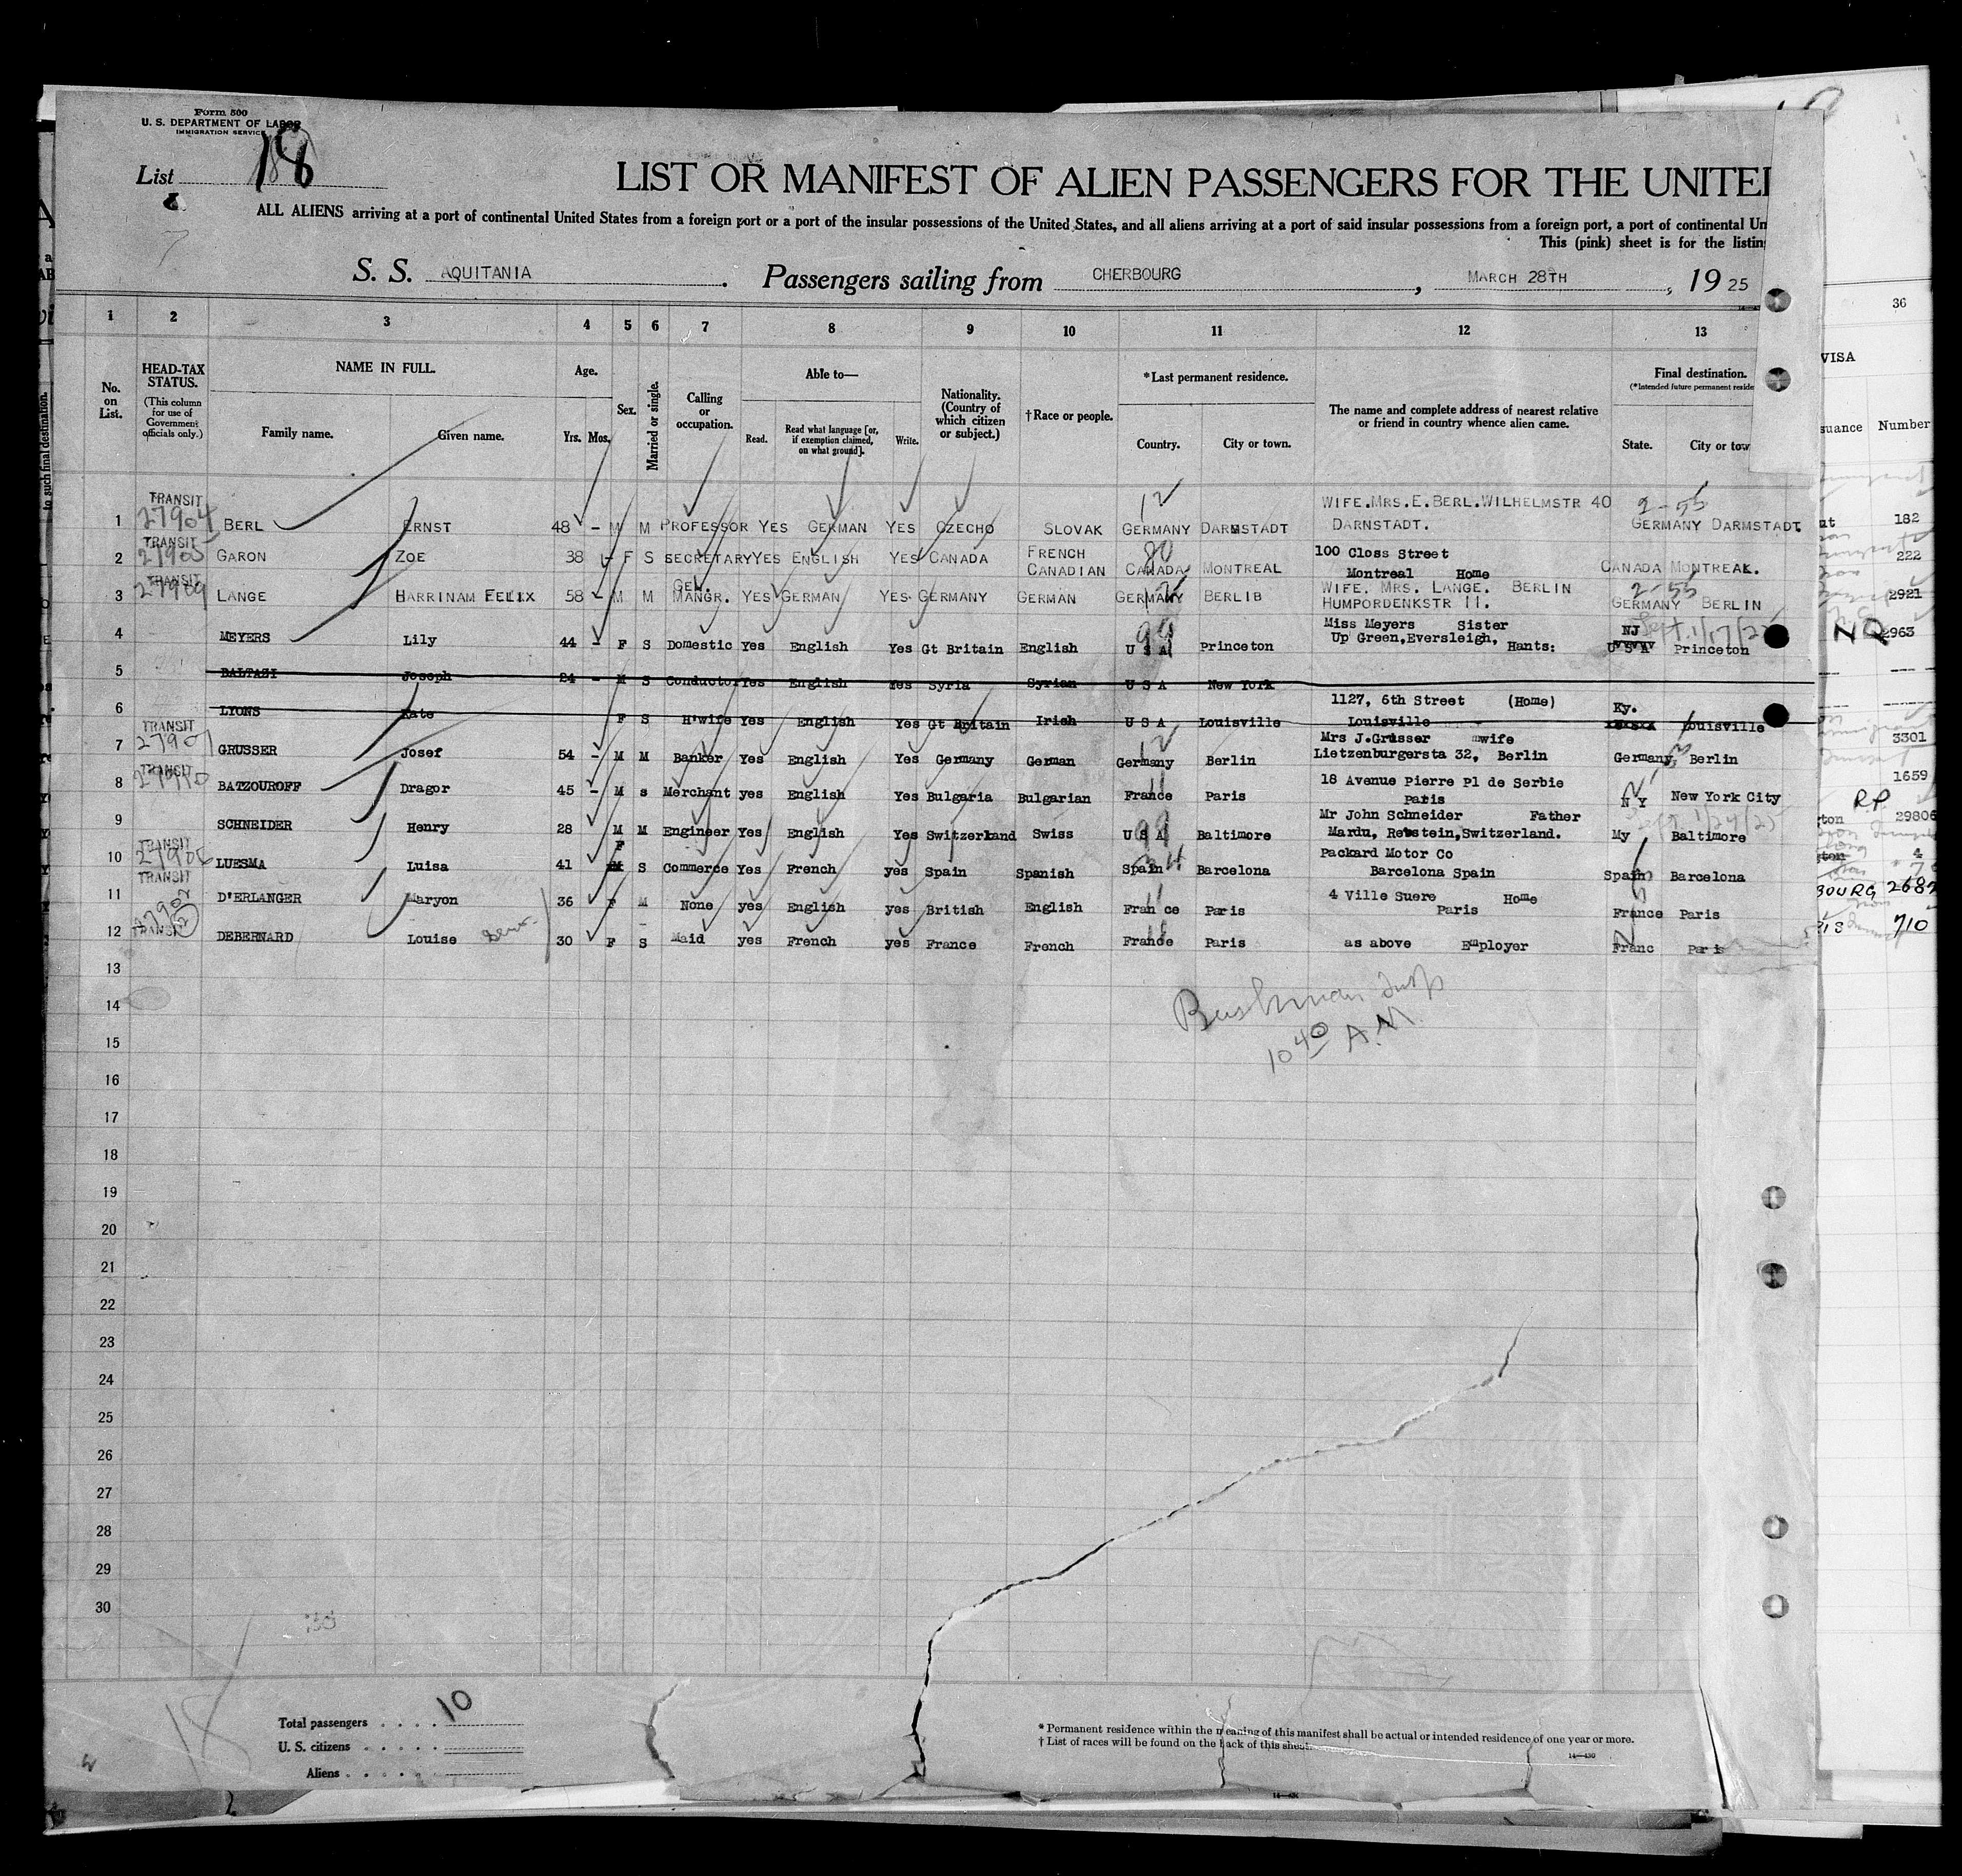 Form 500
U. S. DEPARTMENT OF LABOR
IMMIGRATION SERVICE
List 18
7
LIST OR MANIFEST OF ALIEN PASSENGERS FOR THE UNITE
ALL ALIENS arriving at a port of continental United States from a foreign port or a port of the insular possessions of the United States, and all aliens arriving at a port of said insular possessions from a foreign port, a port of continental Un
This (pink) sheet is for the listin
S. S. AQUITANIA. Passengers sailing from CHERBOURG, MARCH 28TH, 19 25
1 2 3 4 5 6 7 8 9 10 11 12 13 36
HEAD-TAX STATUS. (This column for use of Government officials only.)
No. on List.
NAME IN FULL.
Family name. Given name.
Age.
Yrs. Mos.
Sex.
Married or single.
Calling or occupation.
Able to—
Read. Read what language [or, if exemption claimed, on what ground]. Write.
Nationality. (Country of which citizen or subject.)
†Race or people.
*Last permanent residence.
Country. City or town.
The name and complete address of nearest relative or friend in country whence alien came.
Final destination.
(*Intended future permanent reside
State. City or tow
VISA
suance Number
TRANSIT 12 WIFE.MRS.E.BERL.WILHELMSTR 40 2-55
1 27904 BERL ERNST 48 - M M PROFESSOR YES GERMAN YES CZECHO SLOVAK GERMANY DARMSTADT DARNSTADT. GERMANY DARMSTADT 182
TRANSIT FRENCH 80 100 Closs Street
2 27905 GARON ZOE 38 - F S SECRETARY YES ENGLISH YES CANADA CANADIAN CANADA MONTREAL Montreal Home CANADA MONTREAL. 222
TRANSIT GEN. WIFE. MRS. LANGE. BERLIN 2-55
3 27909 LANGE HARRINAM FELIX 58 M M MANGR. YES GERMAN YES GERMANY GERMAN GERMANY BERLIB HUMPORDENKSTR 11. GERMANY BERLIN 2921
99 Miss Meyers Sister NJ
4 MEYERS Lily 44 - F S Domestic Yes English Yes Gt Britain English U S A Princeton Up Green,Eversleigh, Hants: U S A Princeton 2963
5 BALTAZI Joseph 24 - M S Conductor Yes English Yes Syria Syrian U S A New York
1127, 6th Street (Home) Ky.
6 LYONS Kate F S H'wife Yes English Yes Gt Britain Irish U S A Louisville Louisville Louisville
TRANSIT 12 Mrs J.Grusser wife
7 27901 GRUSSER Josef 54 - M M Banker Yes English Yes Germany German Germany Berlin Lietzenburgersta 32, Berlin Germany Berlin 3301
TRANSIT 11 18 Avenue Pierre Pl de Serbie
8 27910 BATZOUROFF Dragor 45 - M s Merchant yes English Yes Bulgaria Bulgarian France Paris Paris N Y New York City 1659
99 Mr John Schneider Father
9 SCHNEIDER Henry 28 M M Engineer Yes English Yes Switzerland Swiss U S A Baltimore Mardu, Retstein,Switzerland. My Baltimore RP gton 29806
TRANSIT F Packard Motor Co
10 27906 LUESMA Luisa 41 M S Commerce Yes French yes Spain Spanish Spain Barcelona Barcelona Spain Spain Barcelona 4
TRANSIT 11 4 Ville Suere Home
11 27902 D'ERLANGER Maryon 36 F M None yes English yes British English France Paris Paris France Paris BOURG 2682
TRANSIT
12 DEBERNARD Louise 30 F S Maid yes French yes France French France Paris as above Employer Franc Paris 710
13
14
Bushman Insp
15
10 40 A.M.
16
17
18
19
20
21
22
23
24
25
26
27
28
29
30
18
Total passengers . . . . 10
U. S. citizens . . . . .
Aliens . . . . . .
* Permanent residence within the meaning of this manifest shall be actual or intended residence of one year or more.
† List of races will be found on the back of this sheet.
14—430